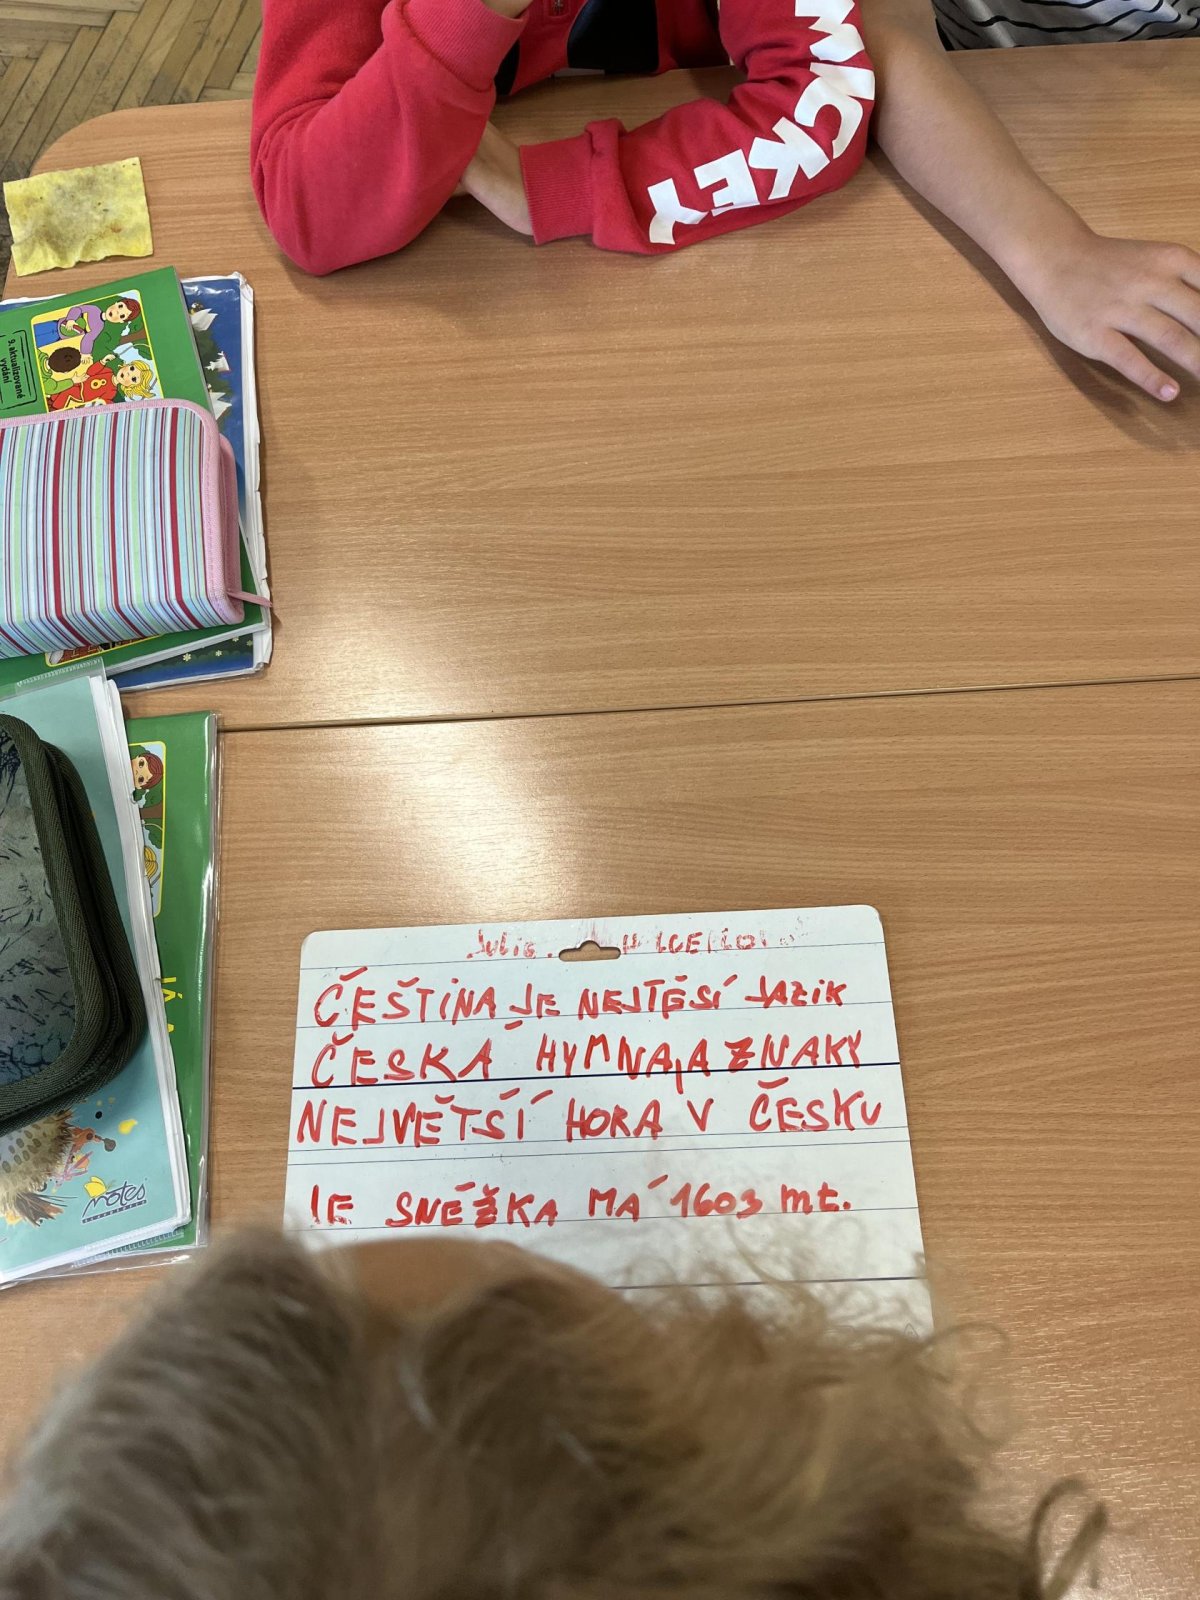 MICKEY
9. aktualizované
vydání
notes
ČEŠTINA JE NEJTĚSÍ JAZIK
ČESKÁ HYMNA,A ZNAKY
NEJVĚTŠÍ HORA V ČESKU
JE SNĚŽKA MÁ 1603 mt.